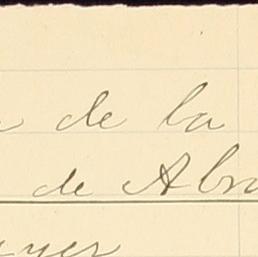 de la
de Abra
yer